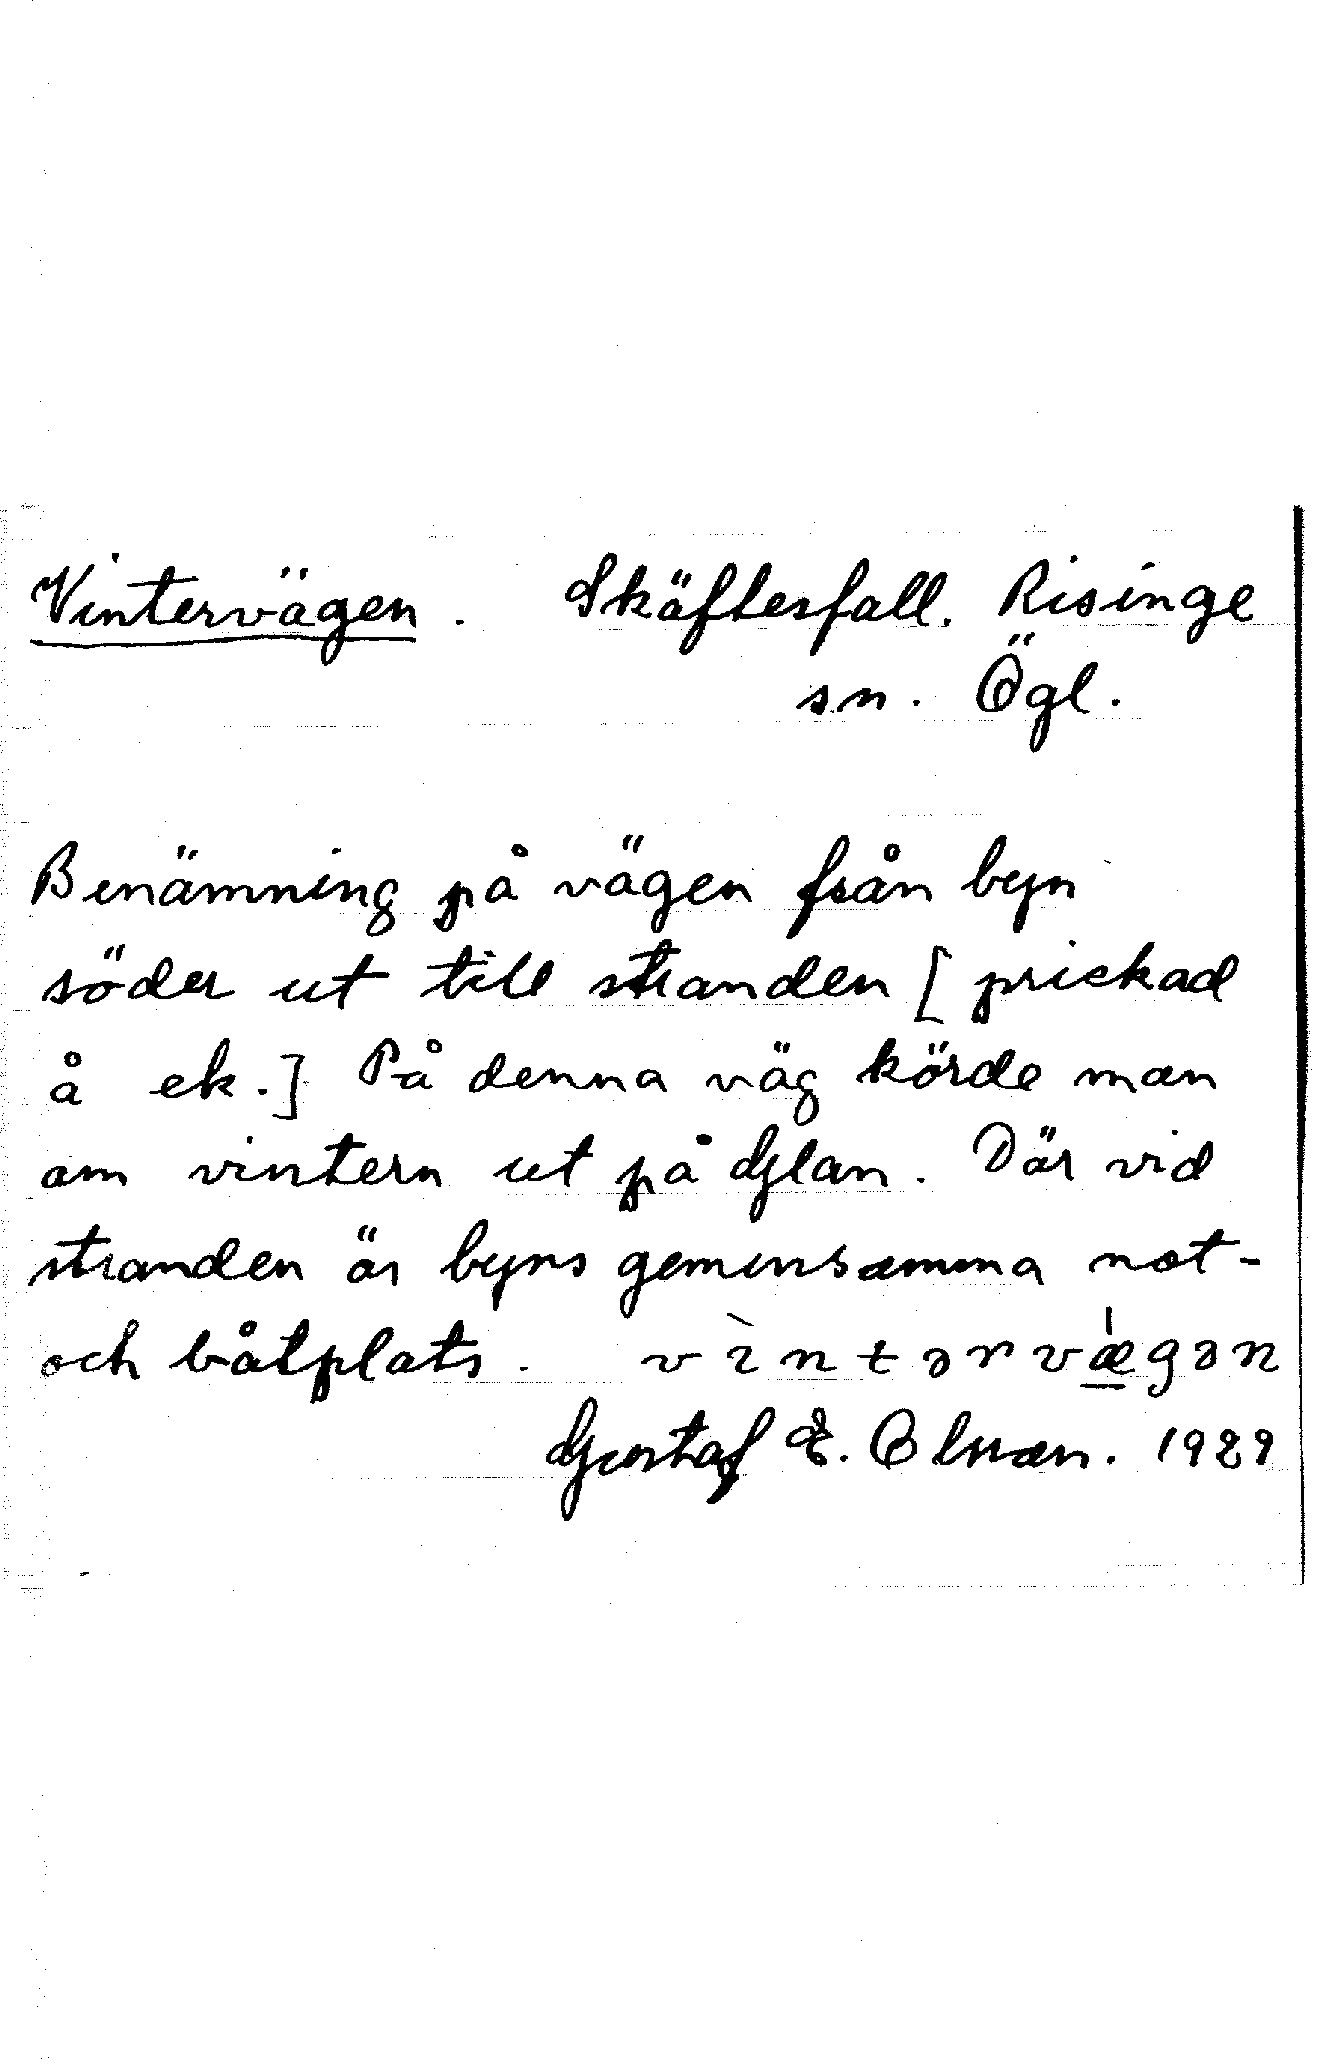 Vintervägen. Skäftesfall. Risinge
sn. Ögl.
Benämning på vägen från byn
söder ut till stranden [prickad
å ek.] På denna väg körde man
om vintern ut på Glan. Där vid
stranden är byns gemensamma not-
och båtplats. vìntərvǽ̱gən
Gustaf E. Olsson. 1929